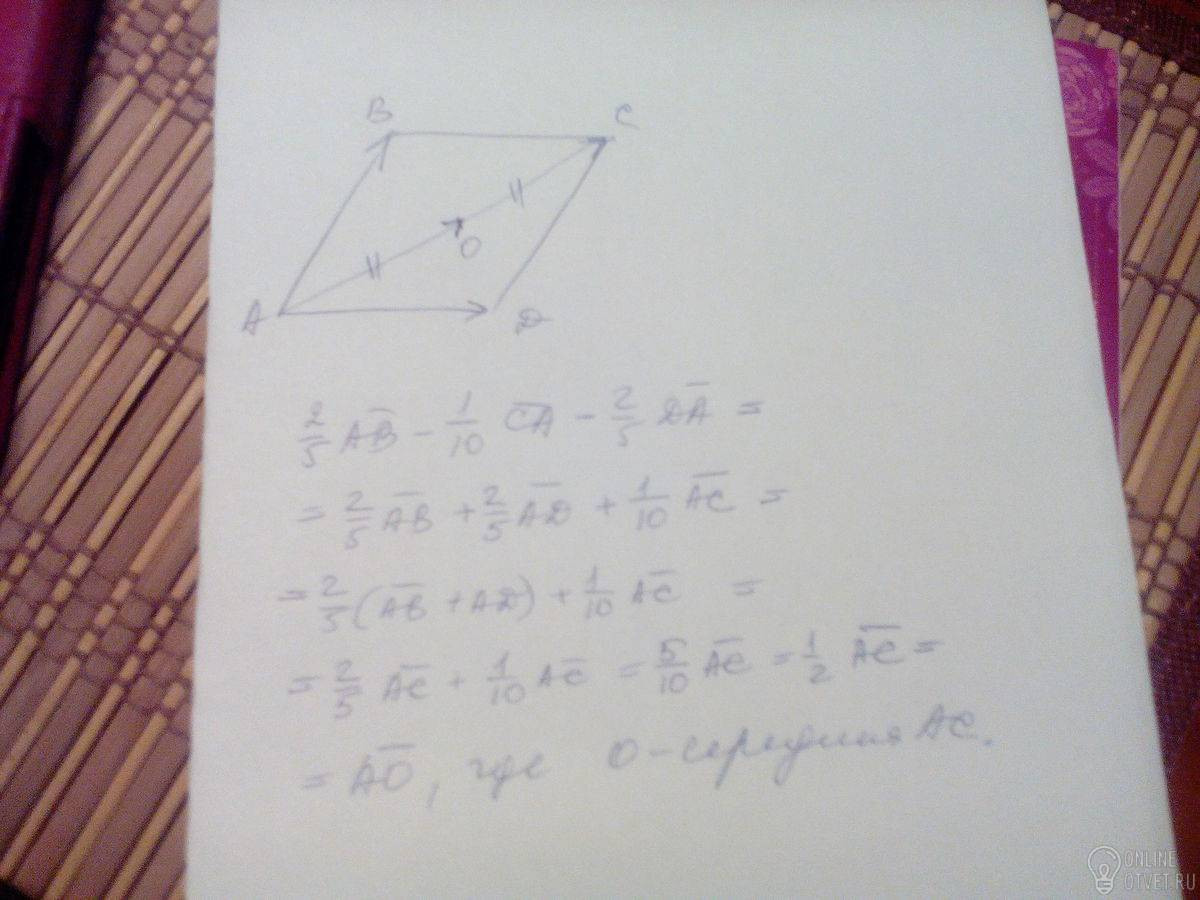 B C
O
A D
2/5 A̅B̅ - 1/10 C̅A̅ - 2/5 D̅A̅ =
= 2/5 A̅B̅ + 2/5 A̅D̅ + 1/10 A̅C̅ =
= 2/5 (A̅B̅ + AD) + 1/10 A̅C̅ =
= 2/5 A̅C̅ + 1/10 A̅C̅ = 5/10 A̅C̅ = 1/2 A̅C̅ =
= A̅O̅, где O - середина AC.
ONLINE
OTVET.RU